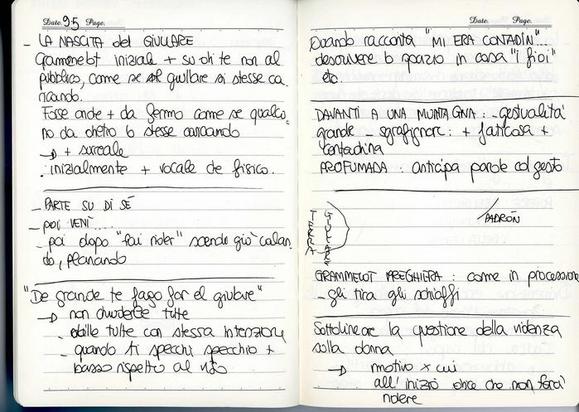 Date. 9.5 Page.
- LA NASCITA del GIULLARE
Gramelot iniziale + su di te non al
pubblico, come se il giullare si stesse ca
ricando.
Forse anche + da fermo come se qualcu
no da dietro lo stesse caricando
→ + surreale
. inizialmente + vocale che fisico.
- PARTE SU DI SÉ
- poi VENÌ
- poi dopo "fai rider" scende giù calan
do, planando
"De grande te fago far el giulare"
→ non chiuderle tutte
- dille tutte con stessa intenzione
- quando ti specchi specchio +
basso rispetto al viso
Date. Page.
Quando racconta "MI ERA CONTADÌN"...
descrivere lo spazio in casa "i fioi"
etc.
DAVANTI A UNA MONTAGNA: - gestualità
grande - sgrafignare: + faticosa +
contadina
PROFUMADA: anticipa parole col gesto
TERRA
GIULLARE
PADRÓN
GRAMMELOT PREGHIERA: come in processione
- gli tira gli schiaffi
Sottolineare la questione della violenza
sulla donna
→ motivo x cui
all'inizio dice che non farà
ridere